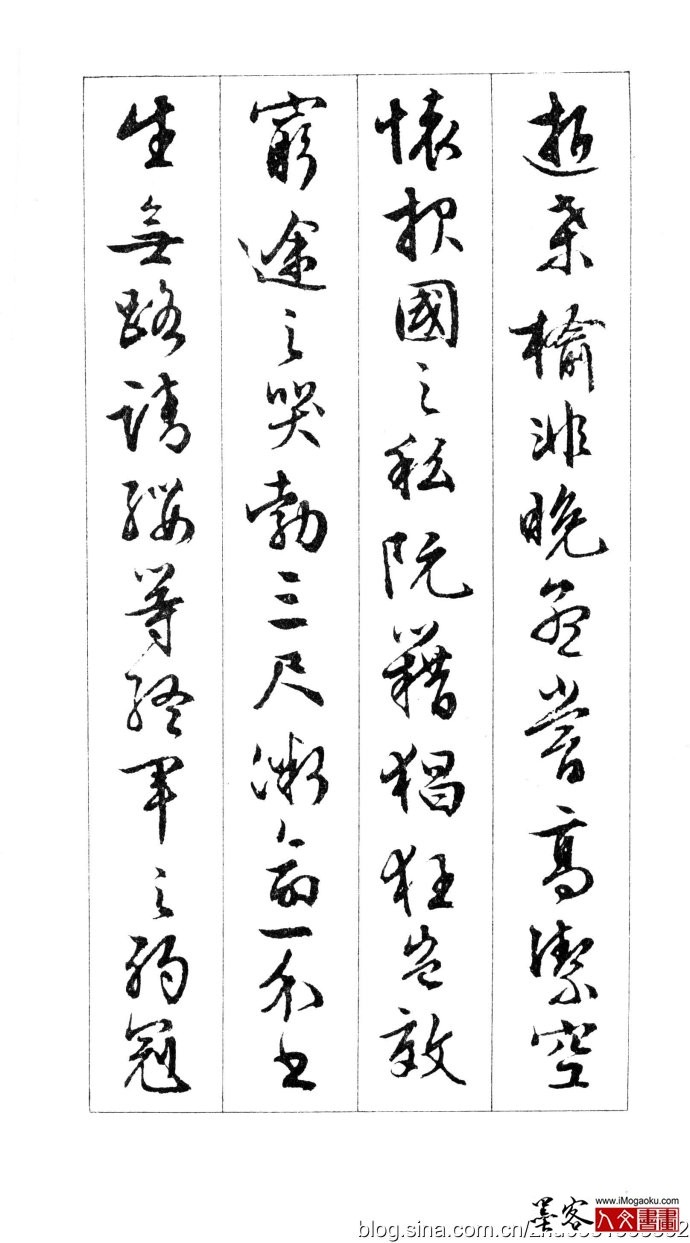 逝桑榆非晚孟嘗高潔空
懷报國之私阮籍猖狂豈效
窮途之哭勃三尺微命一介书
生無路請纓等終軍之弱冠
www.iMogaoku.com
墨客人文書畫